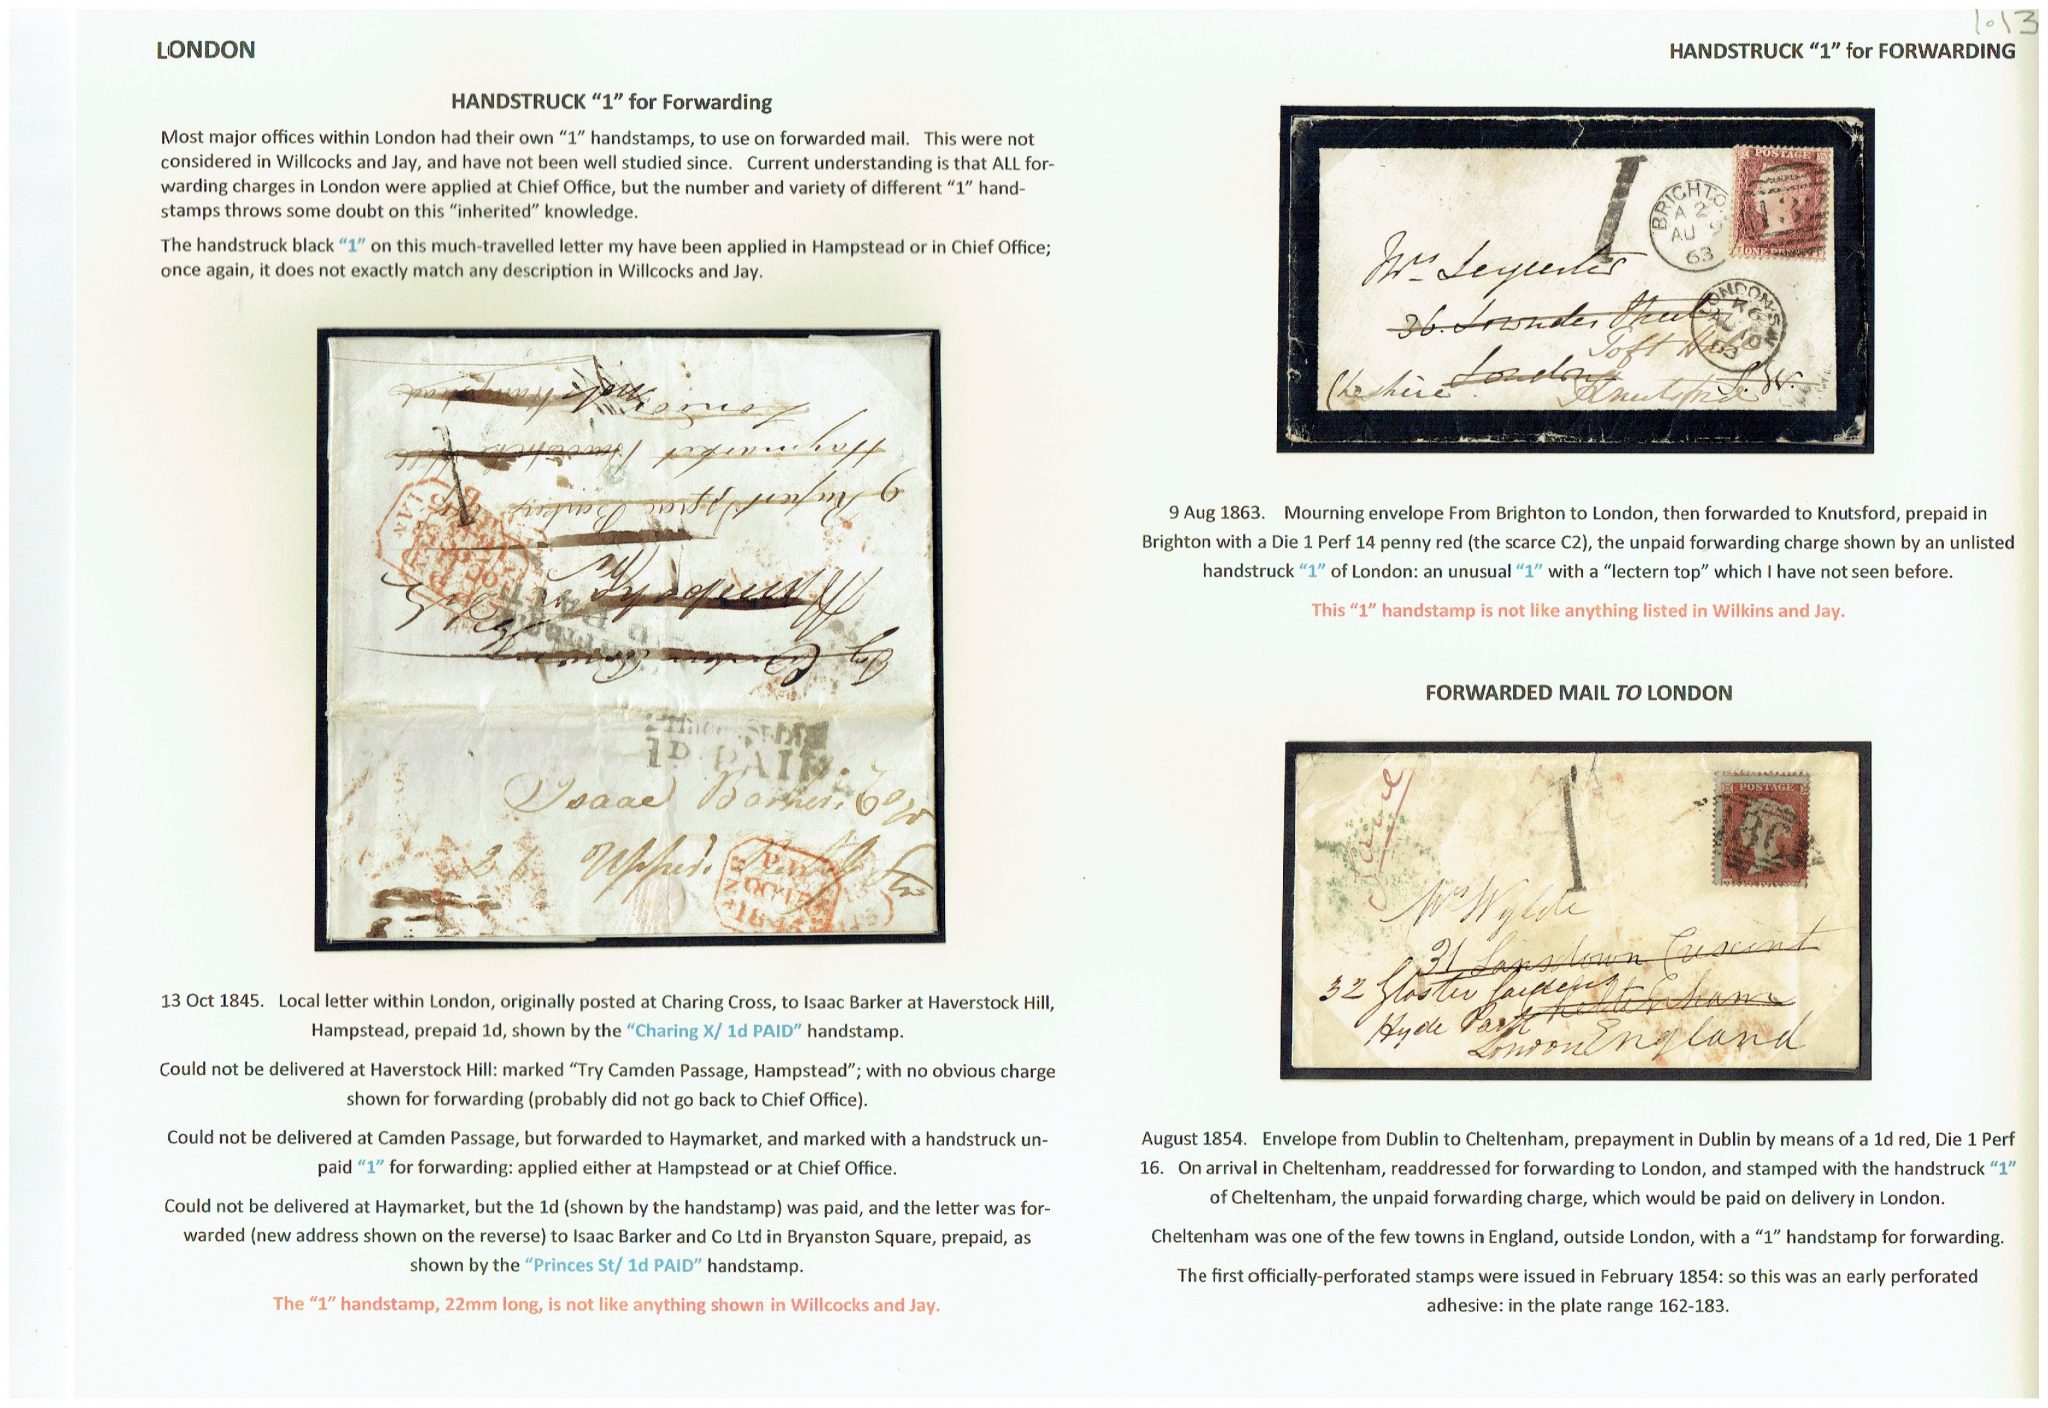 1.13
LONDON
HANDSTRUCK “1” for FORWARDING
HANDSTRUCK “1” for Forwarding
Most major offices within London had their own “1” handstamps, to use on forwarded mail. This were not
considered in Willcocks and Jay, and have not been well studied since. Current understanding is that ALL for-
warding charges in London were applied at Chief Office, but the number and variety of different “1” hand-
stamps throws some doubt on this “inherited” knowledge.
The handstruck black “1” on this much-travelled letter my have been applied in Hampstead or in Chief Office;
once again, it does not exactly match any description in Willcocks and Jay.
London
Haymarket
9 Rupert St Isaac Barker
1
1D PAID
Isaac Barker
26 Upper
P.D
13 Oct 1845. Local letter within London, originally posted at Charing Cross, to Isaac Barker at Haverstock Hill,
Hampstead, prepaid 1d, shown by the “Charing X/ 1d PAID” handstamp.
Could not be delivered at Haverstock Hill: marked “Try Camden Passage, Hampstead”; with no obvious charge
shown for forwarding (probably did not go back to Chief Office).
Could not be delivered at Camden Passage, but forwarded to Haymarket, and marked with a handstruck un-
paid “1” for forwarding: applied either at Hampstead or at Chief Office.
Could not be delivered at Haymarket, but the 1d (shown by the handstamp) was paid, and the letter was for-
warded (new address shown on the reverse) to Isaac Barker and Co Ltd in Bryanston Square, prepaid, as
shown by the “Princes St/ 1d PAID” handstamp.
The “1” handstamp, 22mm long, is not like anything shown in Willcocks and Jay.
1
POSTAGE
ONE PENNY
BRIGHTON
A 2
AU 9
63
LONDON S.W
AU 10
63
Mrs Leycester
36. Lowndes Street
Toft Hall
London S.W.
Cheshire. Knutsford
9 Aug 1863. Mourning envelope From Brighton to London, then forwarded to Knutsford, prepaid in
Brighton with a Die 1 Perf 14 penny red (the scarce C2), the unpaid forwarding charge shown by an unlisted
handstruck “1” of London: an unusual “1” with a “lectern top” which I have not seen before.
This “1” handstamp is not like anything listed in Wilkins and Jay.
FORWARDED MAIL TO LONDON
1
POSTAGE
Mrs Wylde
31 Lansdown Crescent
32 Gloster Gardens Cheltenham
Hyde Park
London England
August 1854. Envelope from Dublin to Cheltenham, prepayment in Dublin by means of a 1d red, Die 1 Perf
16. On arrival in Cheltenham, readdressed for forwarding to London, and stamped with the handstruck “1”
of Cheltenham, the unpaid forwarding charge, which would be paid on delivery in London.
Cheltenham was one of the few towns in England, outside London, with a “1” handstamp for forwarding.
The first officially-perforated stamps were issued in February 1854: so this was an early perforated
adhesive: in the plate range 162-183.